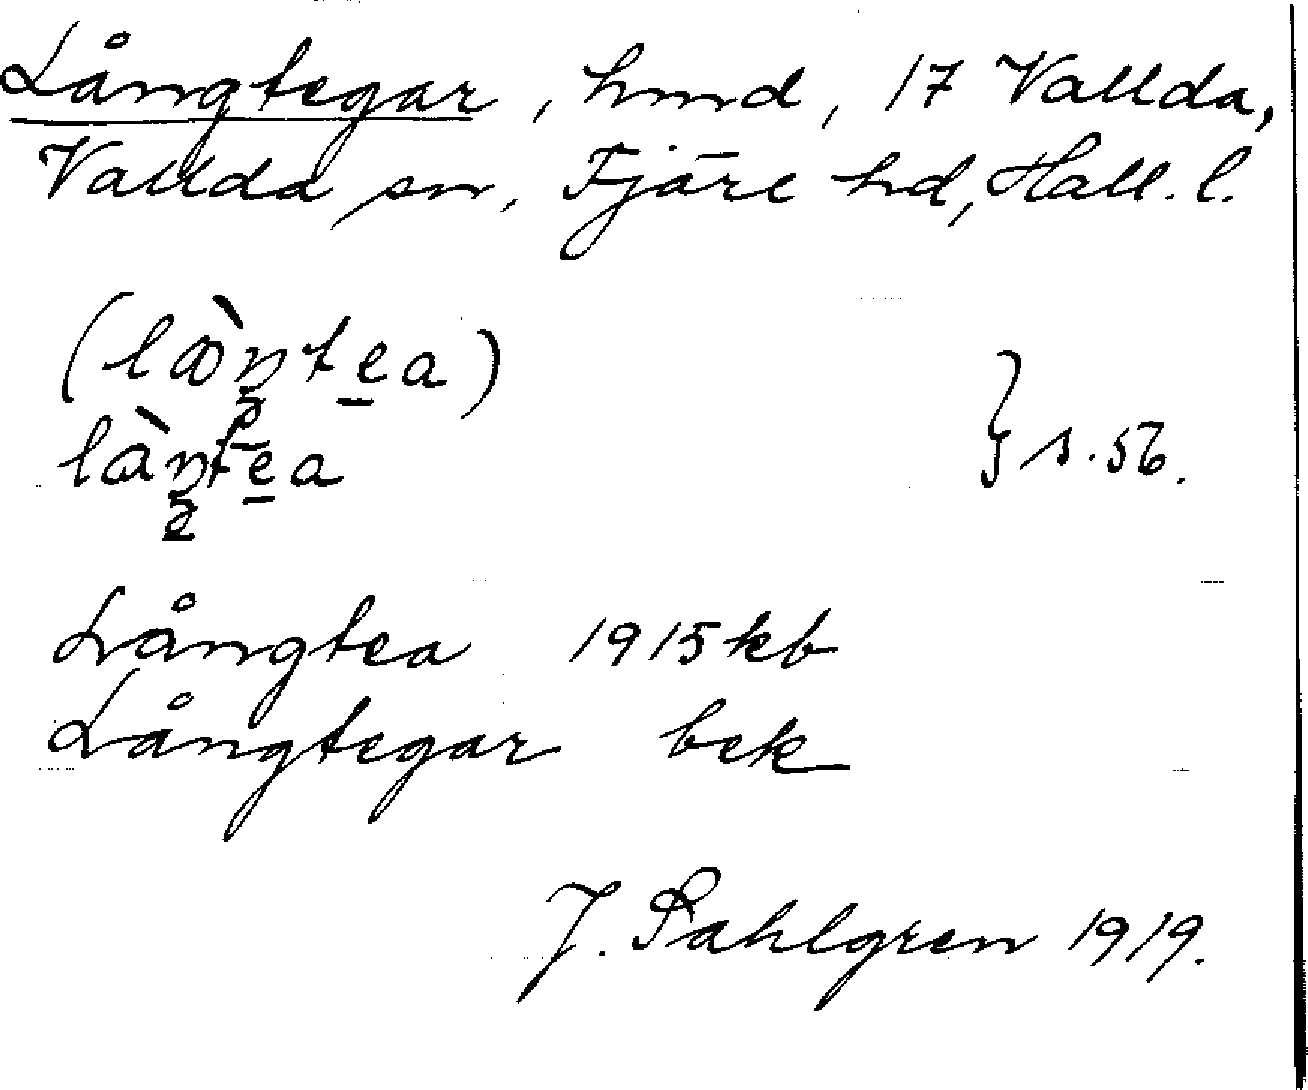 Långtegar, hmd, 17 Vallda,
Vallda sn, Fjäre hd, Hall. l.
(lɷ̀ŋte̠a)
làŋte̠a } s. 56.
Långtea 1915 kb
Långtegar bek
J. Sahlgren 1919.